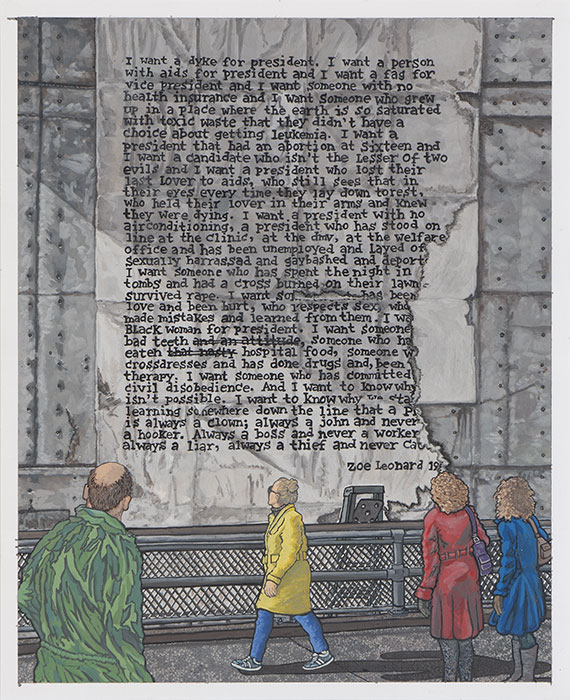 I want a dyke for president. I want a person
with aids for president and I want a fag for
vice president and I want someone with no
health insurance and I want someone who grew
up in a place where the earth is so saturated
with toxic waste that they didn't have a
choice about getting leukemia. I want a
president that had an abortion at sixteen and
I want a candidate who isn't the lesser of two
evils and I want a president who lost their
last lover to aids, who still sees that in
their eyes every time they lay down to rest,
who held their lover in their arms and knew
they were dying. I want a president with no
airconditioning, a president who has stood on
line at the clinic, at the dmv, at the welfare
office and has been unemployed and layed of
sexually harrassad and gaybashed and deport
I want someone who has spent the night in
tombs and had a cross burned on their lawn
survived rape. I want has been
love and been hurt, who respects sex, who
made mistakes and learned from them. I wa
Black Woman for president. I want someone
bad teeth and an attitude, someone who ha
eaten that nasty hospital food, someone w
crossdresses and has done drugs and, been
therapy. I want someone who has committed
civil disobedience. And I want to know why
isn't possible. I want to know why
learning somewhere down the line that a
is always a clown; always a john and never
a hooker. Always a boss and never a worker
always a liar, always a thief and never cau
Zoe Leonard 19